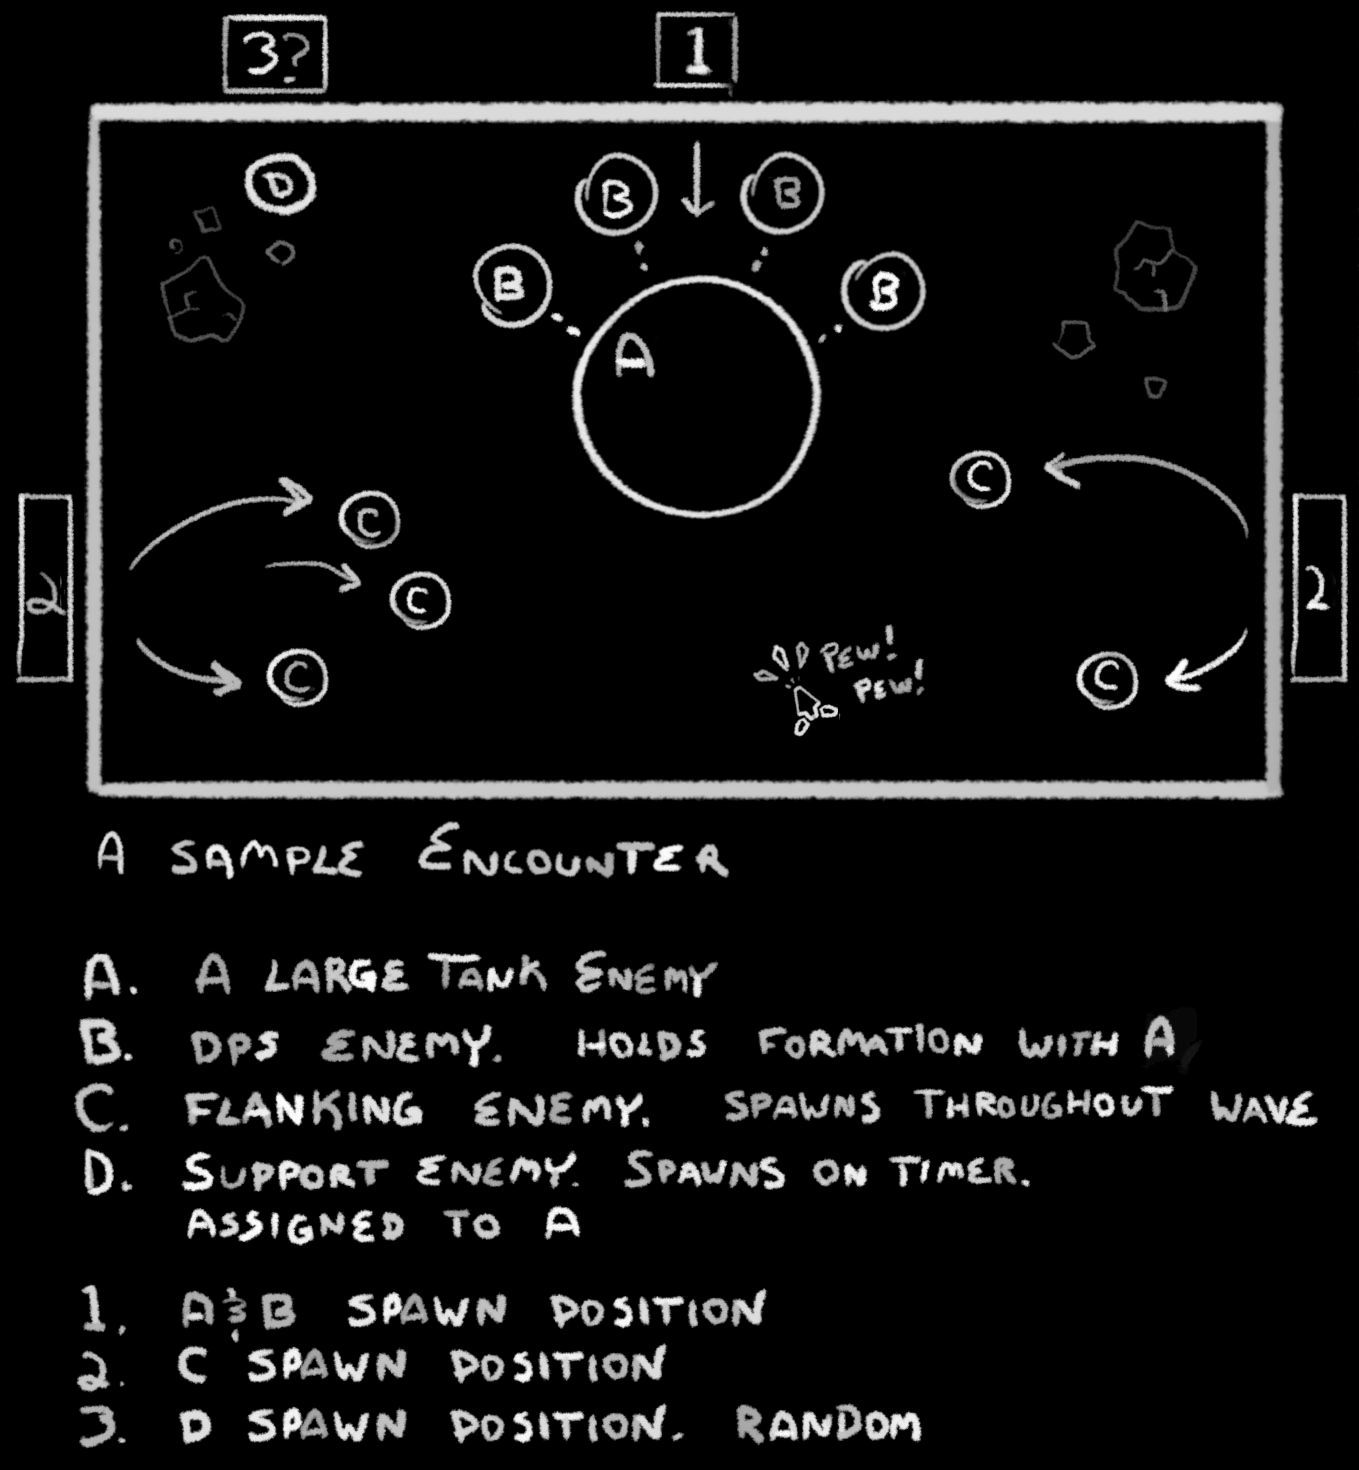 3? 1
D B B
B B
A
C C
C
2 2
C C
PEW!
PEW!
A SAMPLE ENCOUNTER
A. A LARGE TANK ENEMY
B. DPS ENEMY. HOLDS FORMATION WITH A
C. FLANKING ENEMY. SPAWNS THROUGHOUT WAVE
D. SUPPORT ENEMY. SPAWNS ON TIMER.
ASSIGNED TO A
1. A & B SPAWN POSITION
2. C SPAWN POSITION
3. D SPAWN POSITION. RANDOM